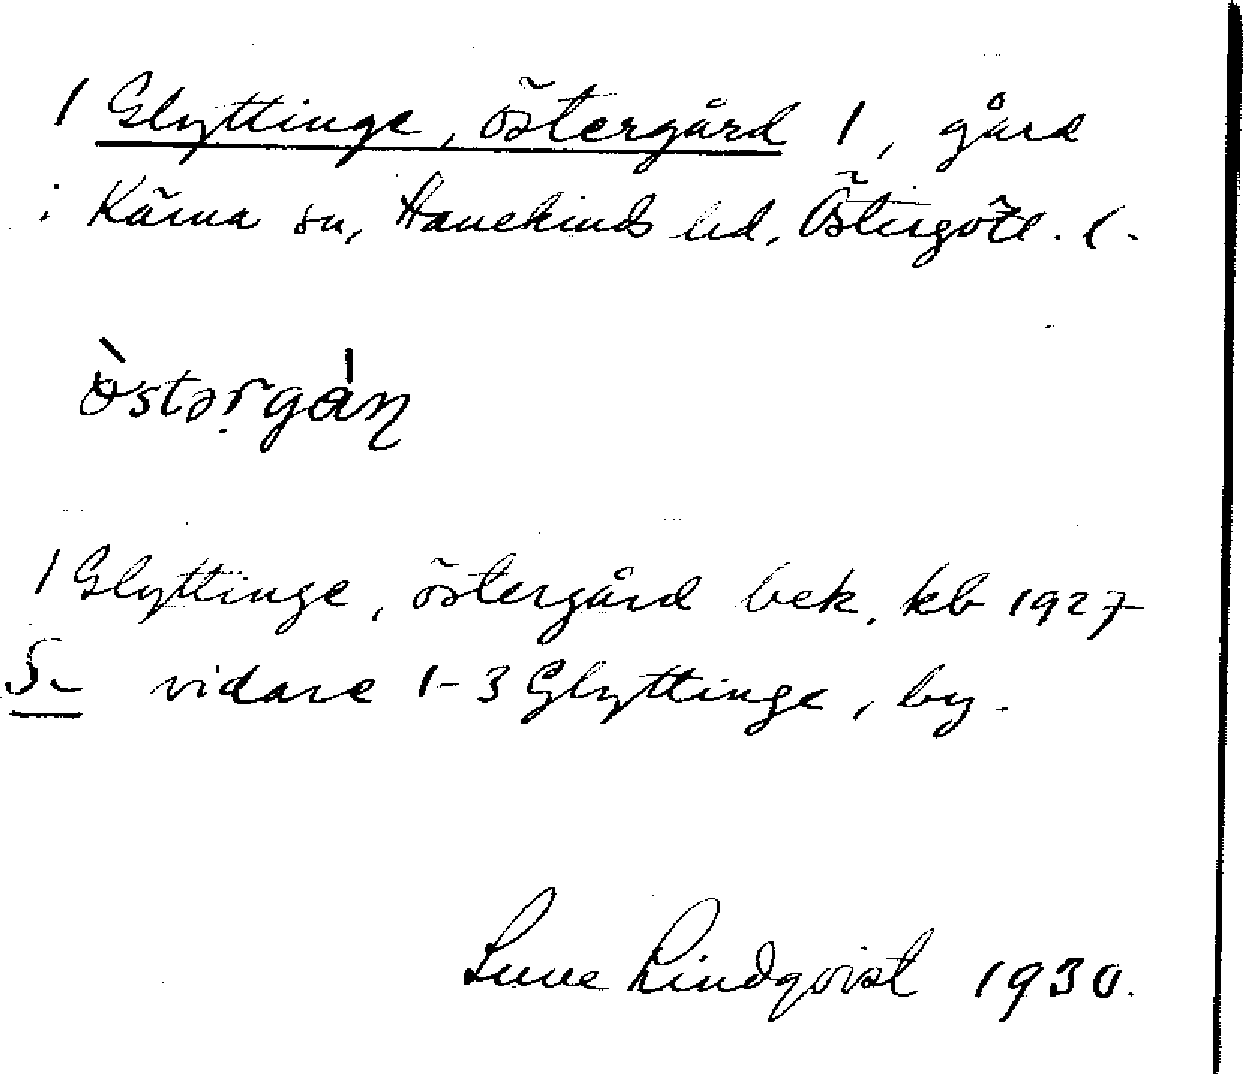 1 Glyttinge, östergård 1, gård
i Kärna sn, Hanekinds hd, Östergötl. l.
östərgån
1 Glyttinge, östergård bek. kb 1927
Se vidare 1-3 Glyttinge, by.
Sune Lindqvist 1930.